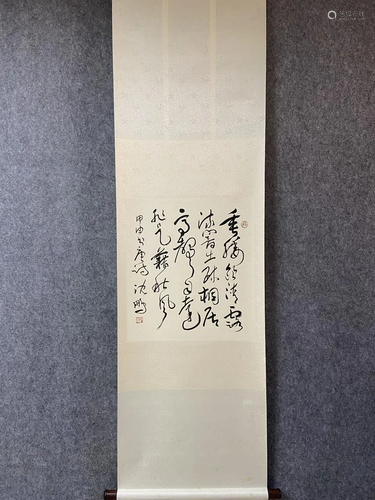 垂緌飲清露
流響出疏桐居
高聲自遠
非是藉秋風
甲申书唐詩 沈鵬